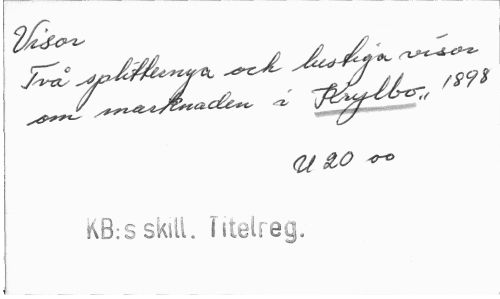 Visor
Två splitternya och lustiga visor
om marknaden i Krylbo,, 1898
U 20 oo
KB:s skill. Titelreg.